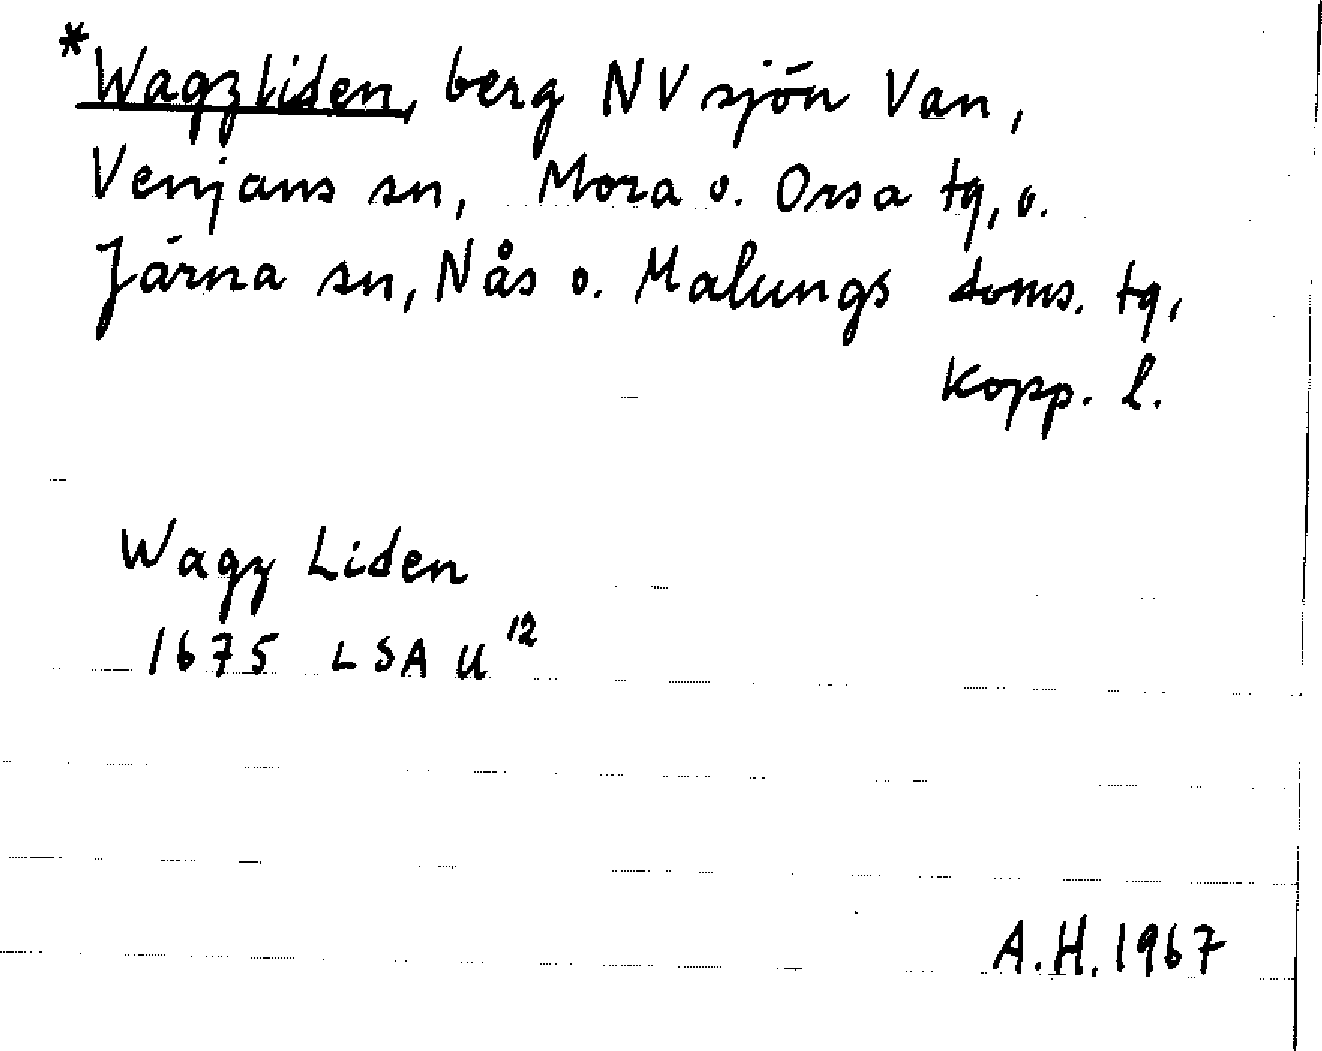 *Wagzliden, berg NV sjön Van,
Venjans sn, Mora o. Orsa tg, o.
Järna sn, Nås o. Malungs doms. tg,
Kopp. l.
Wagz Liden
1675 LSA U¹²
A.H. 1967